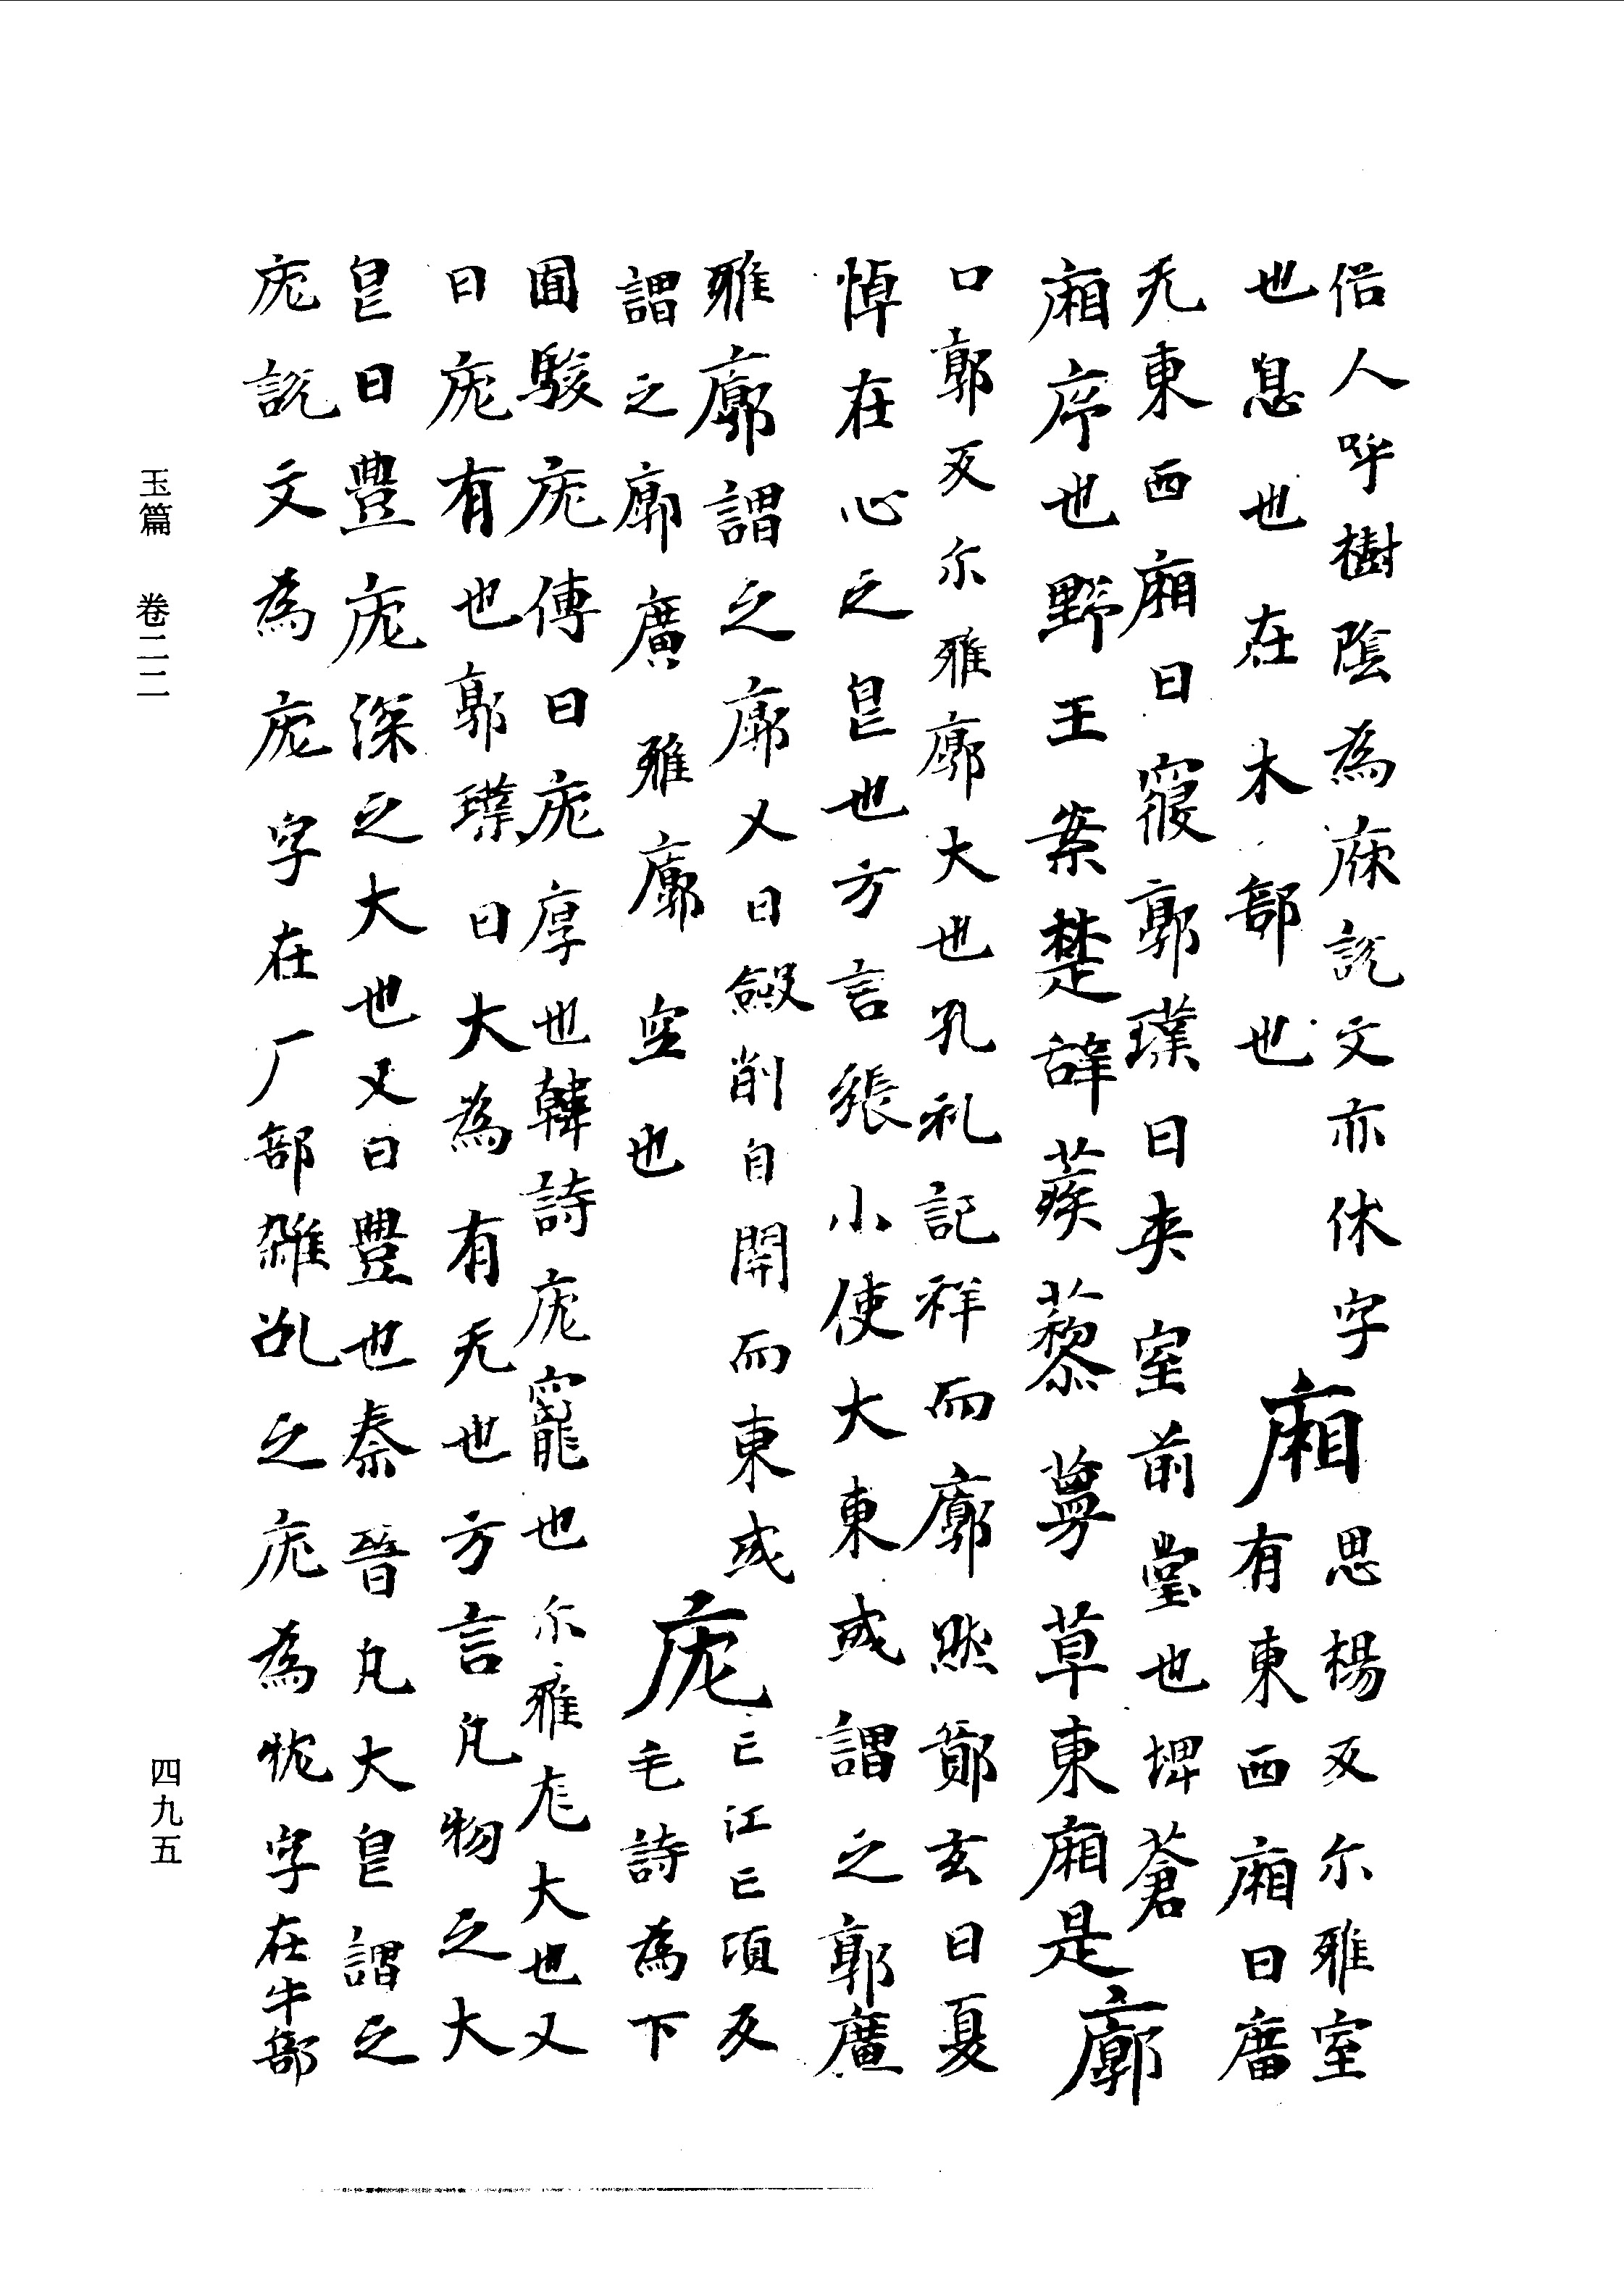 俗人呼樹陰為庥說文亦休字
也息也在木部也
廂
思楊反尒雅室
有東西廂曰庿
无東西廂曰寢郭璞曰夾室前堂也埤蒼
廂序也野王案楚辭蒺藜蔓草東廂是
廓
口郭反尒雅廓大也孔礼記祥而廓然鄭玄曰夏
悼在心之皃也方言張小使大東或謂之郭廣
雅廓謂之廓又曰削自開而東或
謂之廓廣雅廓空也
庬
亡江亡項反
毛詩為下
國駿庬傳曰庬厚也韓詩庬寵也尒雅庬大也又
曰庬有也郭璞曰大為有无也方言凡物之大
皃曰豐庬深之大也又曰豐也秦晉凡大皃謂之
庬說文為庬字在厂部雜乱之庬為牻字在牛部
玉篇 卷二二
四九五